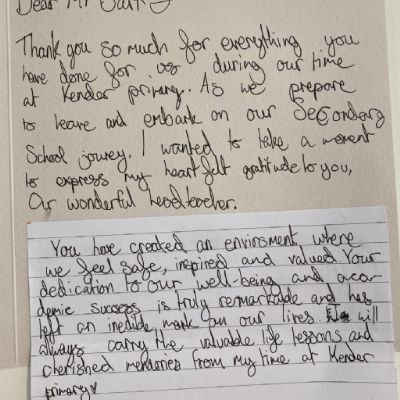 Dear Mr
Thank you so much for everything you
have done for us during our time
at Kender primary. As we prepare
to leave and embark on our Secondary
School jouney. I wanted to take a moment
to express my heartfelt gratitude to you,
Our wonderful headteacher.
You have created an enviroment, where
we feel safe, inspired and valued Your
dedication to our well-being and aca
demic success is truly remarkable and has
left an mark on our lives. will
always carry the valuable life lessons and
cherished memories from my time at Kender
primary